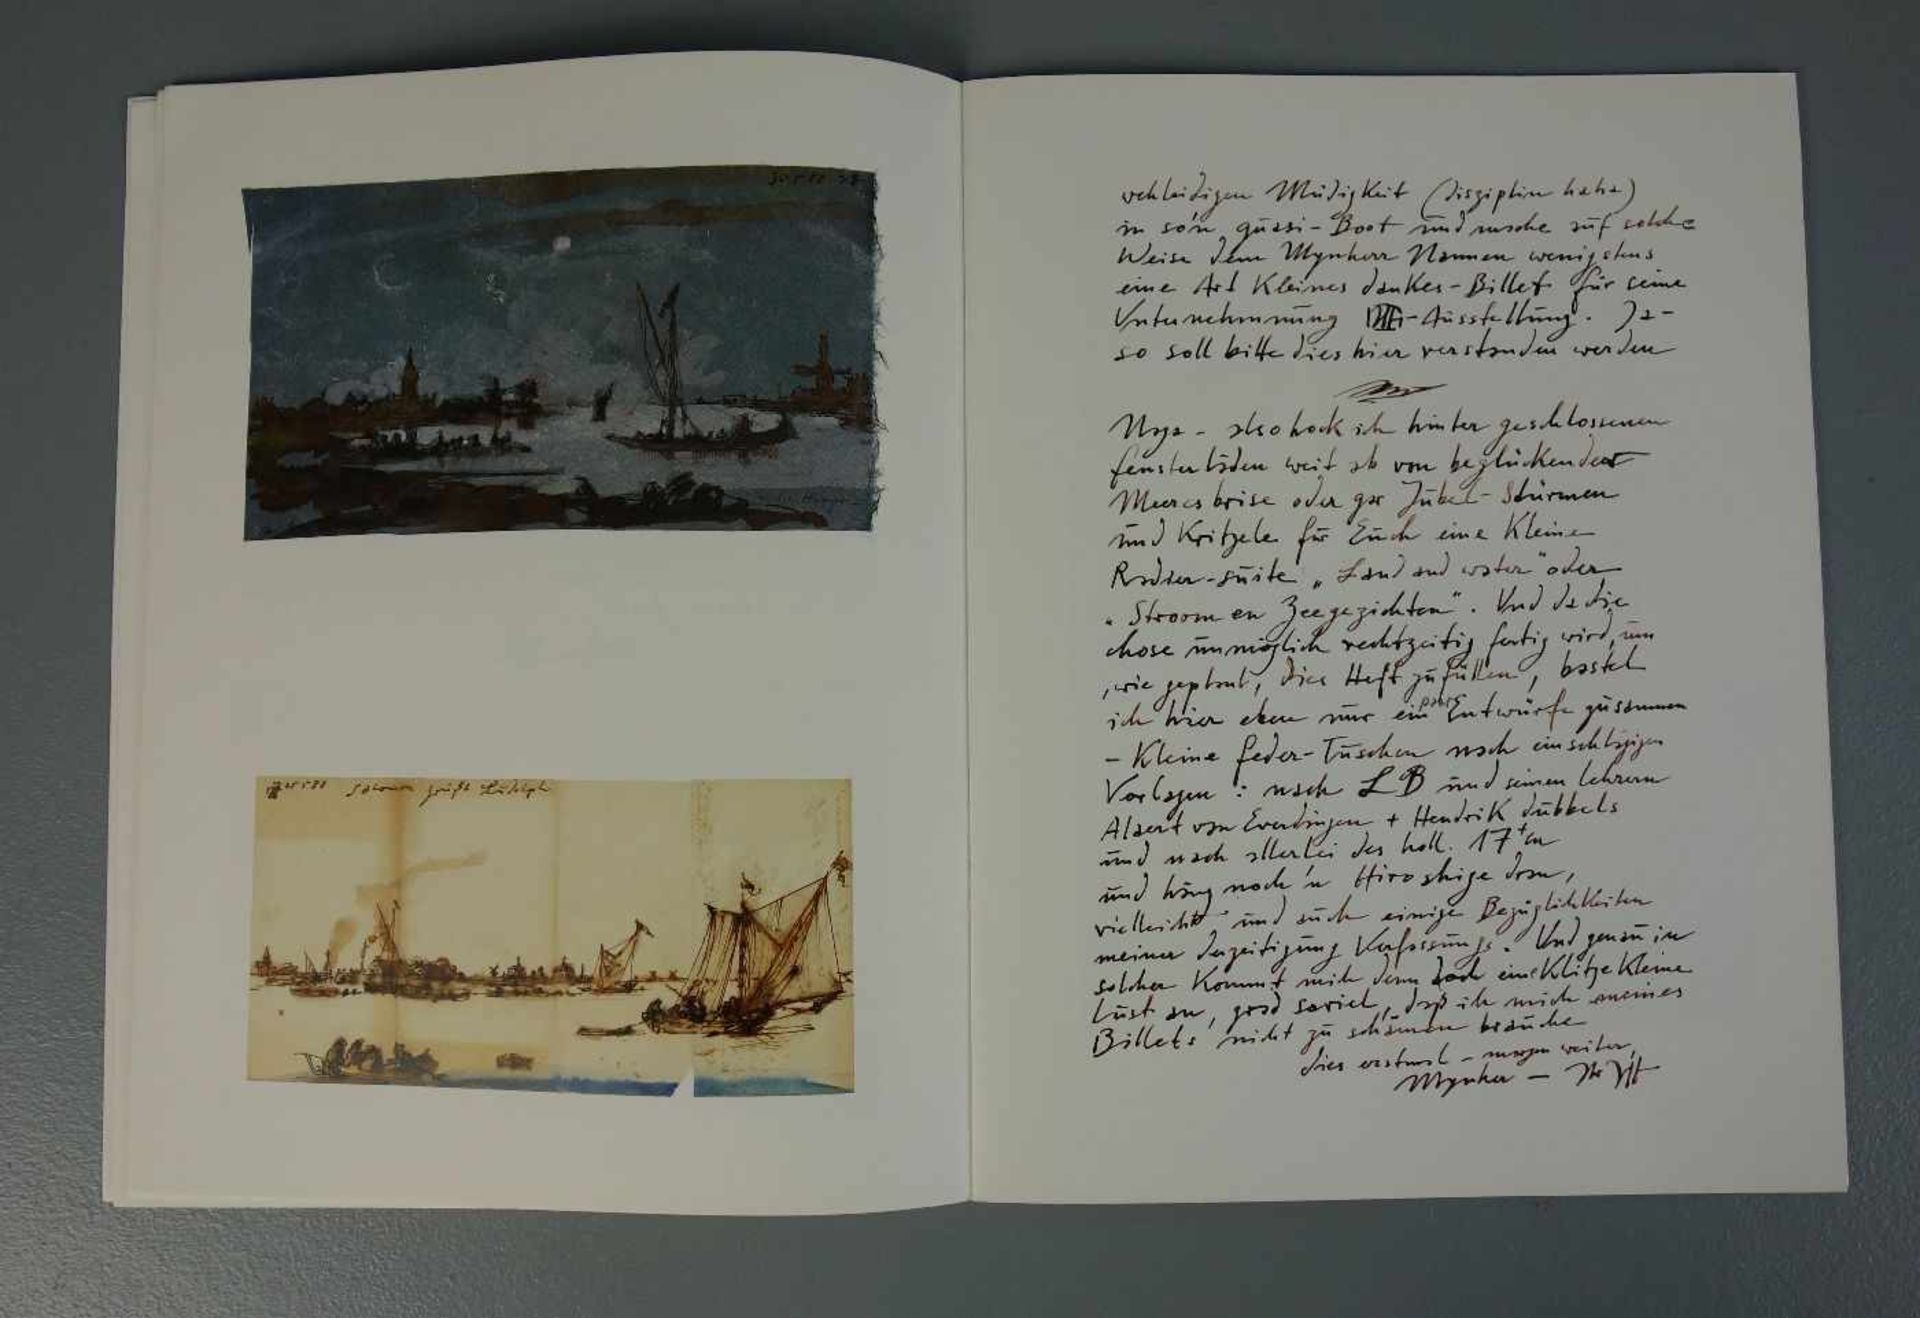 30.5.88
25 5 88 Salomon grüßt Ludolph
wehleidigen Müdigkeit (Disziplin haha)
in so'n quasi-Boot und rusche auf solche
Weise dem Mynherr Nannen wenigstens
eine Art kleines Dankes-Billet für seine
Unternehmnung -Ausstellung. Ja-
so soll bitte dies hier verstanden werden
Naja - also hock ich hinter geschlossenen
Fensterläden weit ab von beglückender
Meeresbrise oder gar Jubel-Stürmen
und Kritzele für Euch eine kleine
Radier-suite „Land and water" oder
„Stroom en Zeegezichten". Und da die
chose unmöglich rechtzeitig fertig wird, um
, wie geplant, dies Heft zu füllen, bastel
ich hier eben nur ein paar Entwürfe zusammen
- Kleine Feder-Tuschen nach einschlägigen
Vorlagen : nach LB und seinen Lehrern
Alaert van Everdingen + Hendrik Dubbels
und nach allerlei des holl. 17ten
und häng noch 'n Hiroshige dran,
vielleicht und auch einige Bezüglichkeiten
meiner derzeitigung Verfassungs. Und genau in
solcher kommt mich denn doch eine klitzekleine
Lust an, grad soviel, daß ich mich meines
Billets nicht zu schämen brauche
dies erstmal - morgen weiter,
Mynher -